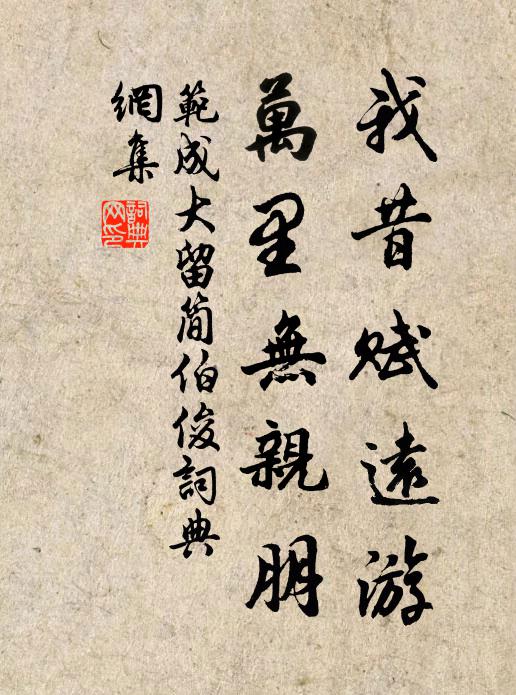 我昔赋遠游
萬里無親朋
範成大留簡伯俊詞典
網集
詞典網印